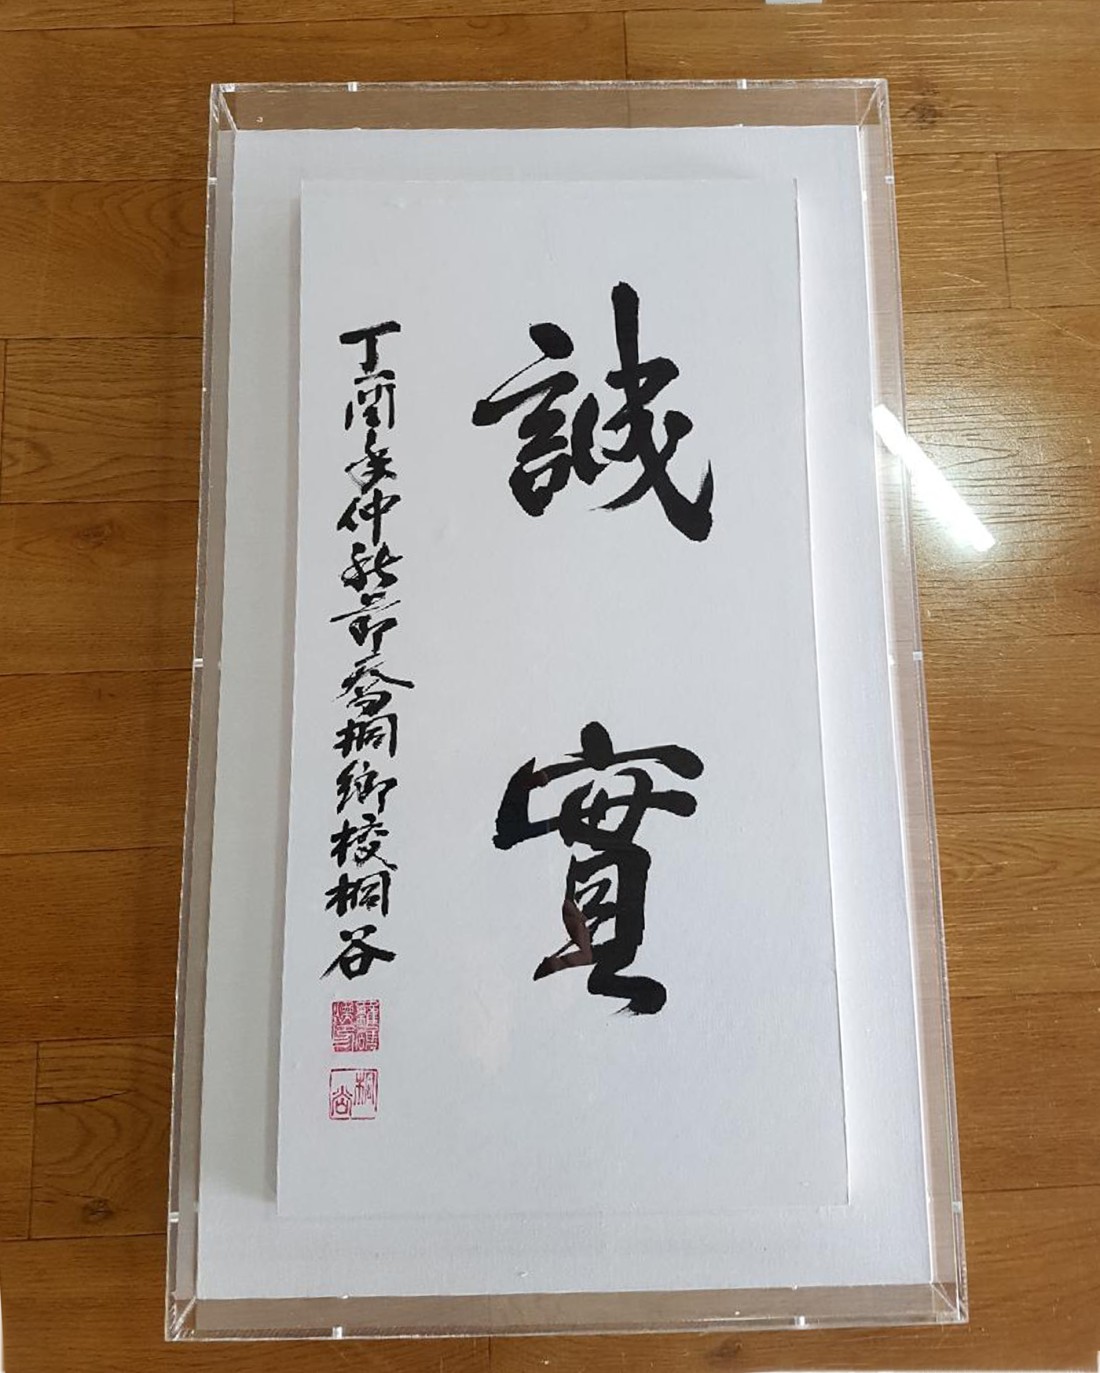 誠實
丁酉年仲秋節喬桐鄕校桐谷
桐谷